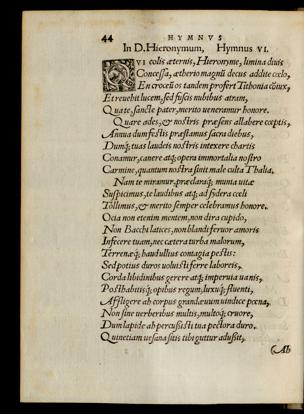 44 HYMNVS
In D. Hieronymum, Hymnus VI.
QVI colis æternis, Hieronyme, limina diuis
Concessa, ætherio magnū decus addite cœlo,
En croceū os tandem profert Tithonia cōiux,
Et reuehit lucem, sed fuscis nubibus atram,
Qua te sancte pater, merito veneramur honore.
Quare ades, & nostris præsens allabere cœptis,
Annua dum festis præstamus sacra diebus,
Dumq; tuas laudeis nostris intexere chartis
Conamur, canere atq; opera immortalia nostro
Carmine, quantum nostra sinit male culta Thalia.
Nam te miramur, præclaraq; munia vitæ
Suspicimus, te laudibus atq; ad sidera cœli
Tollimus, & merito semper celebramus honore.
Ocia non etenim mentem, non dira cupido,
Non Bacchi latices, non blandi feruor amoris
Infecere tuam, nec cætera turba malorum,
Terrenæq; haud ullus contagia pestis:
Sed potius duros voluisti ferre labores,
Corda libidinibus gerere atq; imperuia vanis,
Posthabitisq; opibus regum, luxuq; fluenti,
Affligere ah corpus grandæuum vindice pœna,
Non sine verberibus multis, multoq; cruore,
Dum lapide ah percußisti tua pectora duro,
Quinetiam vesana sitis tibi guttur adußit,
(Ah